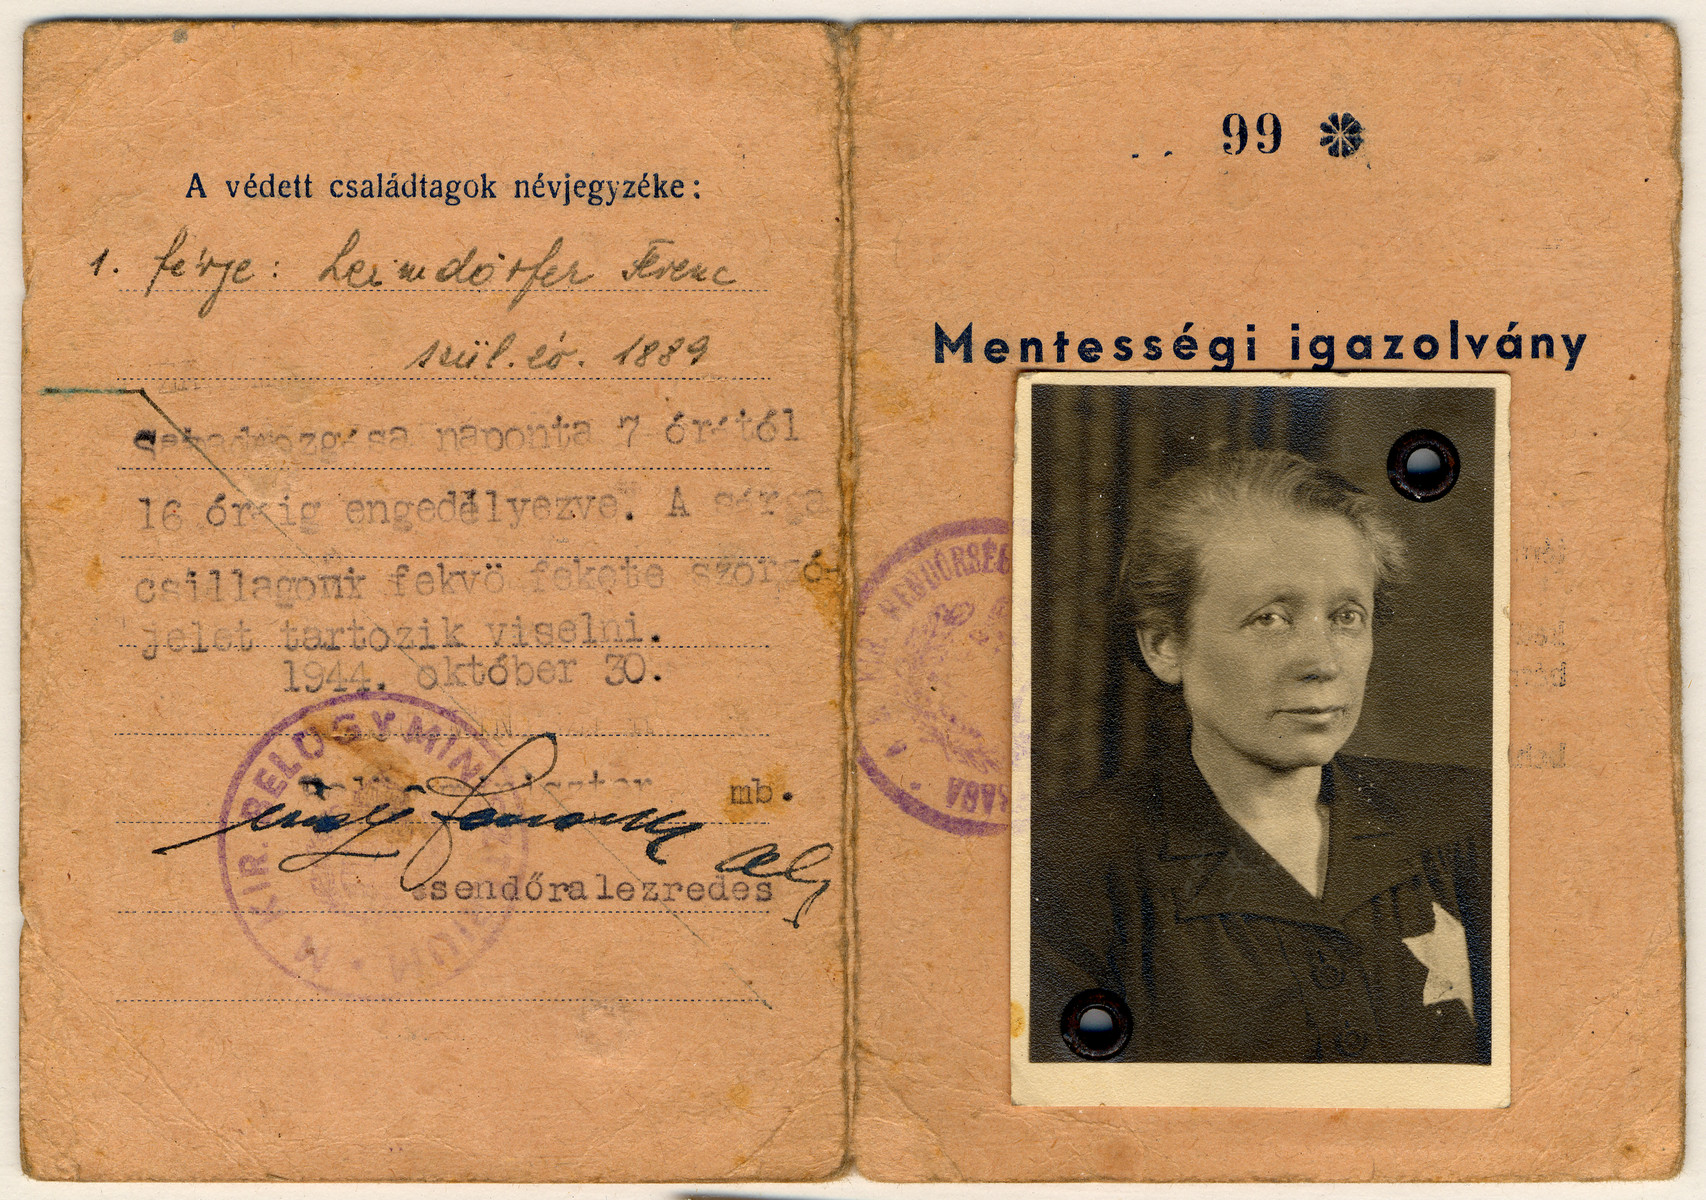 A védett családtagok névjegyzéke:
1. férje: Leimdörfer Ferenc
szül. év. 1889
Szabadmozgása naponta 7 órától
16 óráig engedélyezve. A sárga
csillagon fekvö fekete szorzó-
jelet tartozik viselni.
1944. október 30.
M. KIR. BELÜGYMINISZTERIUM
mb.
csendőralezredes
99
Mentességi igazolvány
M. KIR. RENDŐRSÉG